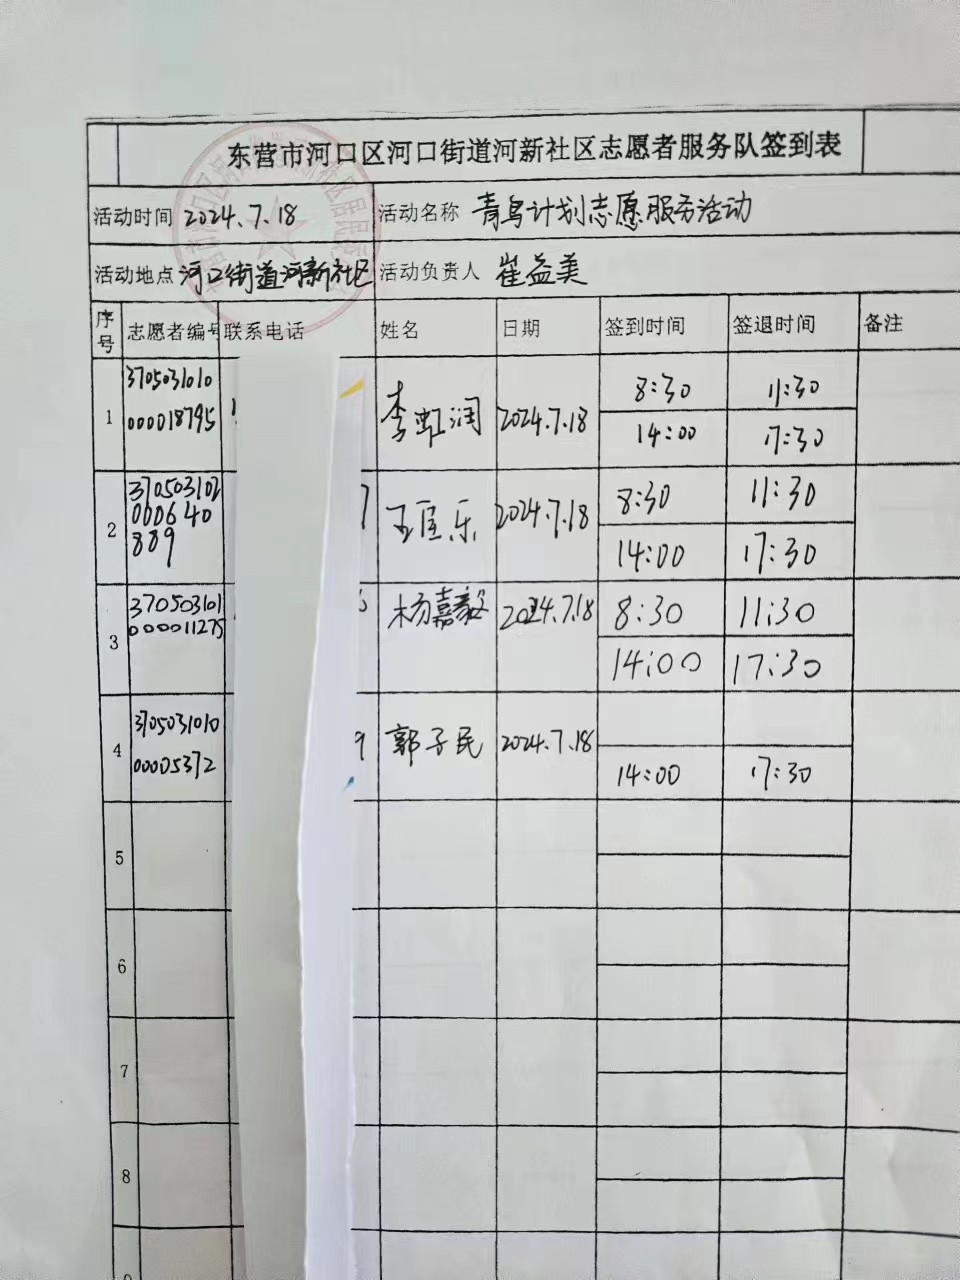 东营市河口区河口街道河新社区志愿者服务队签到表
活动时间 2024.7.18 活动名称 青鸟计划志愿服务活动
活动地点 河口街道河新社区 活动负责人 崔益美
序号 志愿者编号 联系电话 姓名 日期 签到时间 签退时间 备注
3705031010 8:30 11:30
1 000018795 李虹润 2024.7.18
14:00 17:30
370503102 8:30 11:30
2 000640 7 王匡乐 2024.7.18
889 14:00 17:30
370503101 杨嘉毅 2024.7.18 8:30 11:30
000011275
3 14:00 17:30
3705031010
4 9 郭子民 2024.7.18
00005372 14:00 17:30
5
6
7
8